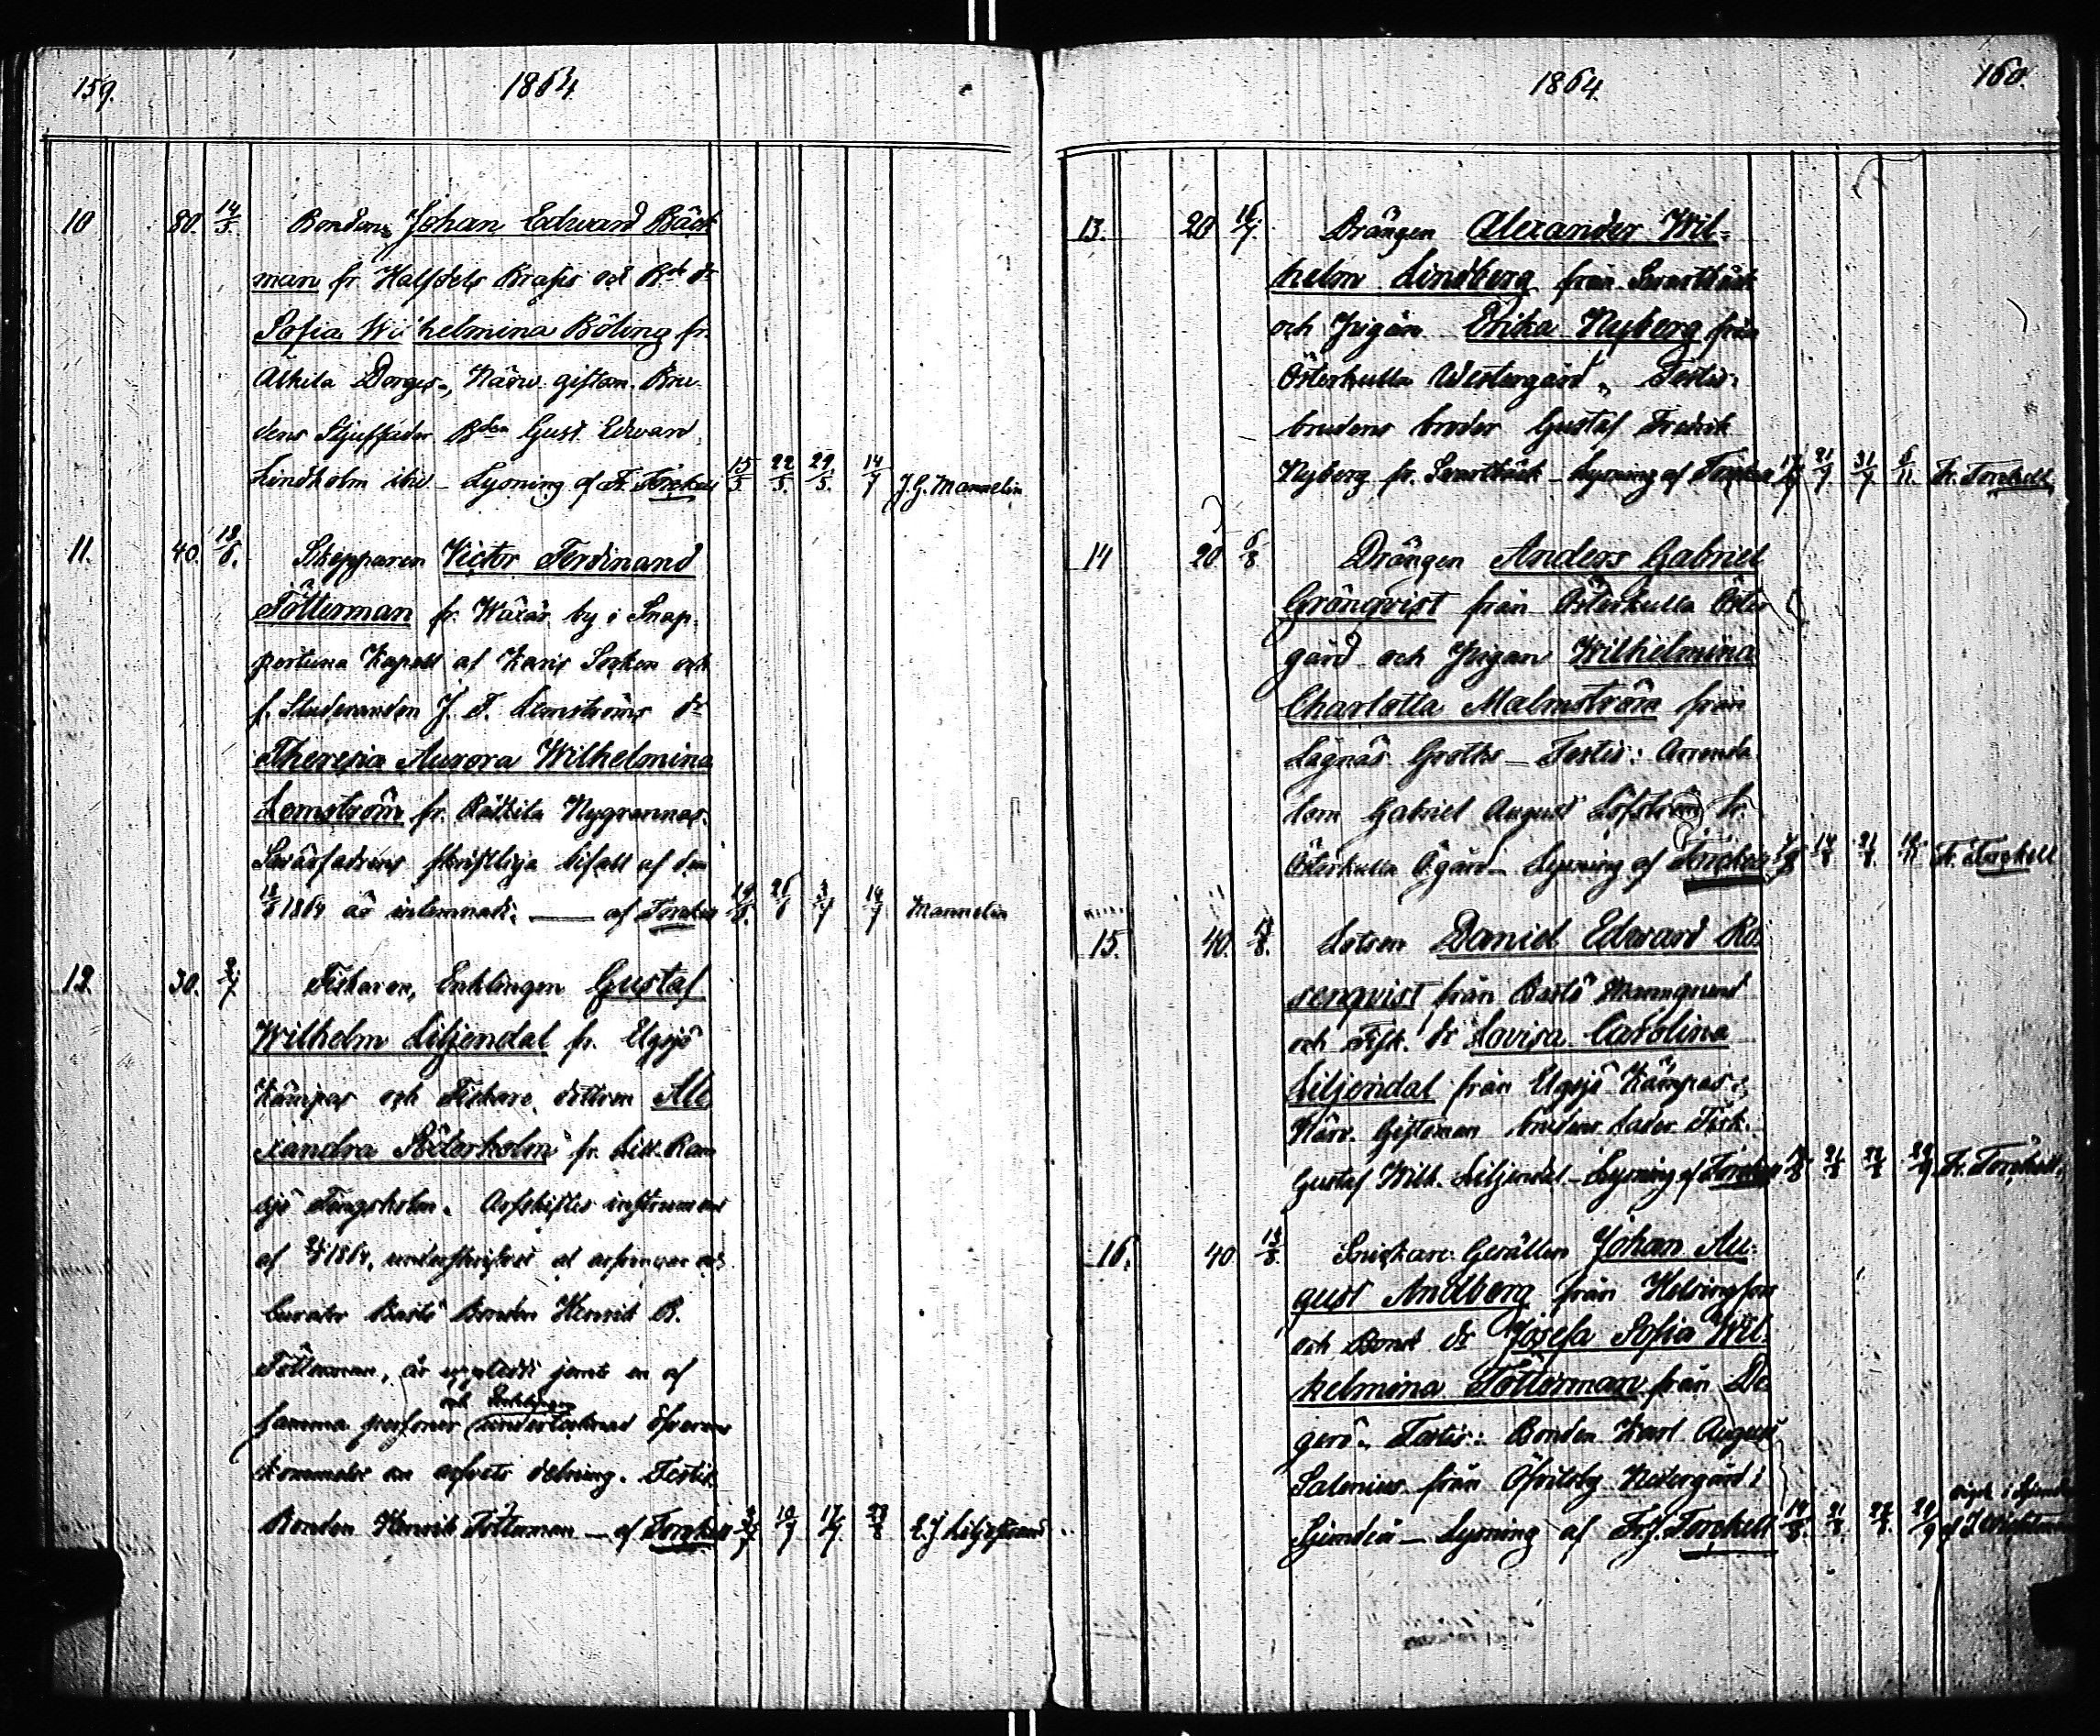 159.
1864.
10 80. 14/5. Bonden Johan Edvard Bäck
man fr. Halstels och Bds dr
Sofia Wilhelmina Böling fr.
Alkila Dorges, Närv. giftom. Bru-
dens Stjuffader Bden Gust. Edvard
Lindholm ibid – Lysning af Fr. Torckell 15/5 22/5. 29/5. 14/7 J. G. Mannelin
11. 40. 18/6. Skepparen Victor Ferdinand
Tötterman fr. Wäxär by i Snap-
pertuna Kapell af Karis Socken och
f. Studeranden J. F. Lemströms dr
Theresia Aurora Wilhelmina
Lemström fr. Rättila Nygrannas.
Svärfadrens skriftliga bifall af den
18/6 1864 är inlemnadt. — af Torckell 19/6. 26/6 3/7 14/7 Mannelin
12. 30. 2/7 Fiskaren, Enklingen Gustaf
Wilhelm Liljendal fr. Elgsjö
Kämpas och Fiskare dottren Ale
xandra Söderholm fr. Lill Ram
sjö Tongsholm. Arfskiftes instrument
af 1864, underskrifvet af
Curator Bastö Bonden Henrik B.
Tötterman, är uppledt jemte en af
och Enklingen
samma personer undertecknad öfverens
kommelse om arfvets delning. Testis:
Bonden Henrik Tötterman — af Torckell 3/7 10/7 17/7 28/8 E. J. Liljestrand
1864.
160.
13. 20 16/7. Drängen Alexander Wil-
helm Lindberg från Svartbäck
och Pigan Erika Nyberg från
Österkulla Westergård, Testis:
brudens broder Gustaf Fredrik
Nyberg fr. Svartbäck – Lysning af Torckell 17/7 24/7 31/7 6/11. Fr. Torckell
14 20 6/8 Drängen Anders Gabriel
Grönqvist från Österkulla Öster
gård och Pigan Wilhelmina
Charlotta Malmström från
Lagnäs Groths – Testis: Arrenda
torn Gabriel August Löfström fr.
Österkulla Ögård – Lysning af Torckell 7/8 14/8 21/8. Fr. Torckell
15. 40. 13/8. Lotsen Daniel Edvard Ro-
senqvist från Bastö
och Fisk. dr Lovisa Carolina
Liljendal från Elgsjö Kämpas.
Närv. Giftoman brudens fader Fisk.
Gustaf Wilh. Liljendal – Lysning af Torckell 14/8 21/8 28/8 Fr. Torckell
16. 40. 13/8. Snickare Gesällen Johan Au-
gust Andberg från Helsingfors
och Bond. dr Josefa Sofia Wil-
helmina Tötterman från De-
gerö. Testis: Bonden Karl August
Salenius från Öfvitsby Nedergård i
vigde i Sjundeå
Sjundeå – Lysning af Fr. J. Torckell 14/8. 21/8. 28/8. af